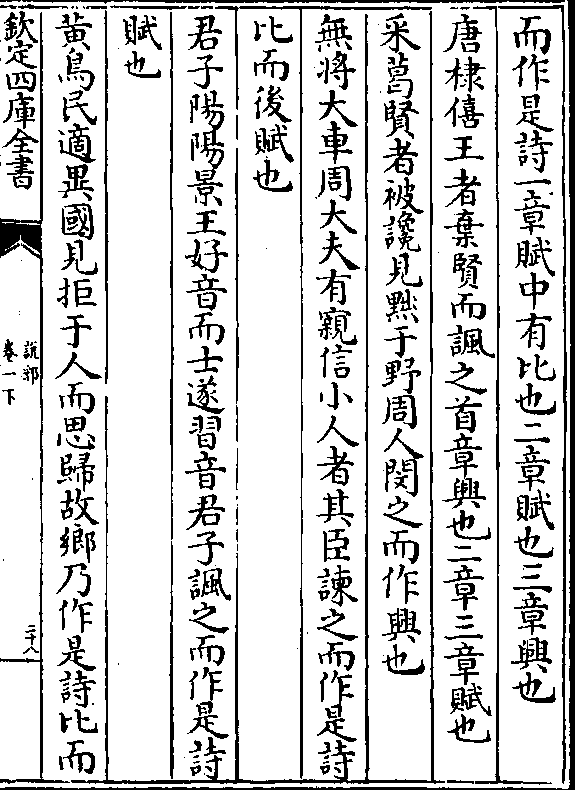 而作是詩一章賦中有比也二章賦也三章興也
唐棣僖王者棄賢而諷之首章興也二章三章賦也
采葛賢者被讒見黜于野周人閔之而作興也
無將大車周大夫有親信小人者其臣諫之而作是詩
比而後賦也
君子陽陽景王好音而士遂習音君子諷之而作是詩
賦也
黃鳥民適異國見拒于人而思歸故鄉乃作是詩比而
欽定四庫全書
說郛
卷一下
三十八